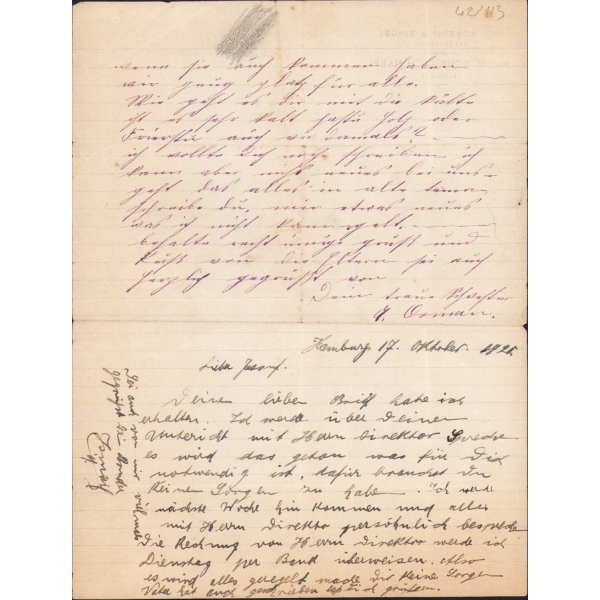 42/113
wenn sie auch kommen haben
wir genug platz für alle.
Wie geht es dir mit die kälte
ist es sehr kalt hast du Holz oder
Frierst du auch wie damals?
ich wollte dich noch schreiben ich
kann aber nicht neues bei uns
geht das alles in alte
schreibe du mir etwas neues
was ich nicht kann
behalte recht innige gruß und
Kuß von die Eltern sei auch
herzlich gegrüßt von
Dein treue Schwester
Hamburg 17. Oktober
Liebe
Deine lieben Brief habe ich
erhalten. Ich werde über Deinen
Untericht mit Herrn Direktor
es wird das getan was für Dich
notwendig ist, dafür brauchst Du
Keine Sorgen zu habe. Ich werde
nächste Woche hin kommen und alles
mit Herrn Direktor persöhnlich bespreche
Die Rechnung von Herrn Direktor werde ich
Dienstag per Bank überweisen. Also
es wird alles geregelt mache Dir Keine Sorgen
Vata hat auch geschrieben
Sei auch von mir vielmals
gegrüßt Dei Bruder